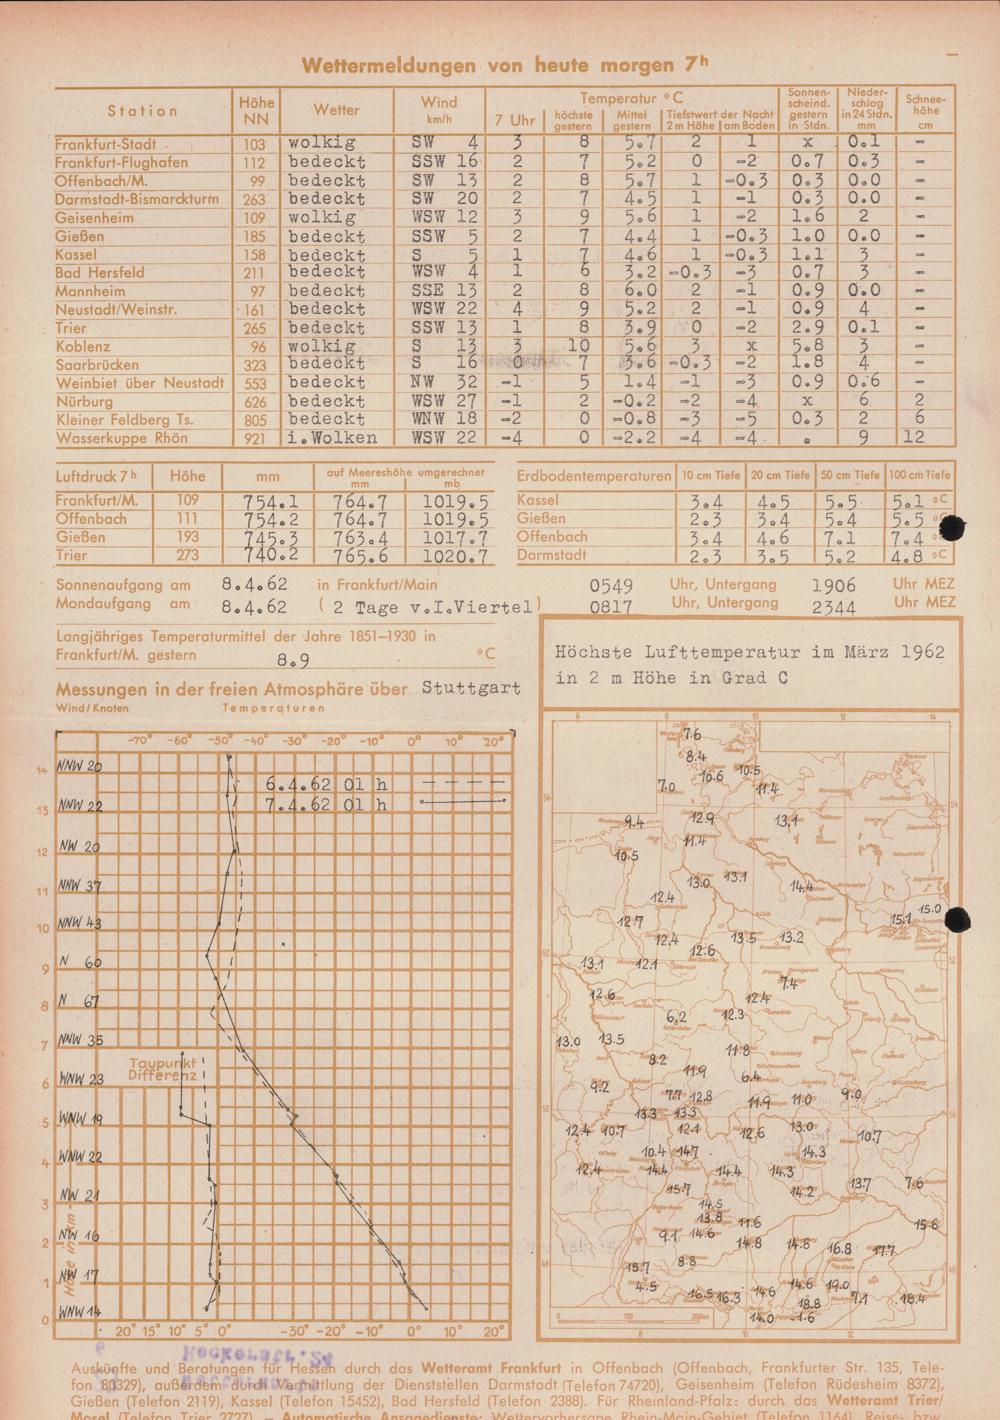 Wettermeldungen von heute morgen 7h
Station Höhe NN Wetter Wind km/h Temperatur °C Sonnenscheind. gestern in Stdn. Niederschlag in 24 Stdn. mm Schneehöhe cm
7 Uhr höchste gestern Mittel gestern Tiefstwert der Nacht 2 m Höhe am Boden
Frankfurt-Stadt 103 wolkig SW 4 3 8 5.7 2 1 x 0.1 -
Frankfurt-Flughafen 112 bedeckt SSW 16 2 7 5.2 0 -2 0.7 0.3 -
Offenbach/M. 99 bedeckt SW 13 2 8 5.7 1 -0.3 0.3 0.0 -
Darmstadt-Bismarckturm 263 bedeckt SW 20 2 7 4.5 1 -1 0.3 0.0 -
Geisenheim 109 wolkig WSW 12 3 9 5.6 1 -2 1.6 2 -
Gießen 185 bedeckt SSW 5 2 7 4.4 1 -0.3 1.0 0.0 -
Kassel 158 bedeckt S 5 1 7 4.6 1 -0.3 1.1 3 -
Bad Hersfeld 211 bedeckt WSW 4 1 6 3.2 -0.3 -3 0.7 3 -
Mannheim 97 bedeckt SSE 13 2 8 6.0 2 -1 0.9 0.0 -
Neustadt/Weinstr. 161 bedeckt WSW 22 4 9 5.2 2 -1 0.9 4 -
Trier 265 bedeckt SSW 13 1 8 3.9 0 -2 2.9 0.1 -
Koblenz 96 wolkig S 13 3 10 5.6 3 x 5.8 3 -
Saarbrücken 323 bedeckt S 16 0 7 3.6 -0.3 -2 1.8 4 -
Weinbiet über Neustadt 553 bedeckt NW 32 -1 5 1.4 -1 -3 0.9 0.6 -
Nürburg 626 bedeckt WSW 27 -1 2 -0.2 -2 -4 x 6 2
Kleiner Feldberg Ts. 805 bedeckt WNW 18 -2 0 -0.8 -3 -5 0.3 2 6
Wasserkuppe Rhön 921 i.Wolken WSW 22 -4 0 -2.2 -4 -4 . 9 12
Luftdruck 7h Höhe mm auf Meereshöhe umgerechnet mm mb
Frankfurt/M. 109 754.1 764.7 1019.5
Offenbach 111 754.2 764.7 1019.5
Gießen 193 745.3 763.4 1017.7
Trier 273 740.2 765.6 1020.7
Erdbodentemperaturen 10 cm Tiefe 20 cm Tiefe 50 cm Tiefe 100 cm Tiefe
Kassel 3.4 4.5 5.5 5.1 °C
Gießen 2.3 3.4 5.4 5.5 °C
Offenbach 3.4 4.6 7.1 7.4 °C
Darmstadt 2.3 3.5 5.2 4.8 °C
Sonnenaufgang am 8.4.62 in Frankfurt/Main 0549 Uhr, Untergang 1906 Uhr MEZ
Mondaufgang am 8.4.62 ( 2 Tage v.I.Viertel) 0817 Uhr, Untergang 2344 Uhr MEZ
Langjähriges Temperaturmittel der Jahre 1851–1930 in
Frankfurt/M. gestern 8.9 °C
Messungen in der freien Atmosphäre über Stuttgart
Wind/Knoten Temperaturen
-70° -60° -50° -40° -30° -20° -10° 0° 10° 20°
6.4.62 01 h
7.4.62 01 h
14 NNW 20
13 NNW 22
12 NW 20
11 NNW 37
10 NNW 43
9 N 60
8 N 67
7 NNW 35
Taupunkt
Differenz
6 WNW 23
5 WNW 19
4 WNW 22
3 NW 21
2 NW 16
1 NW 17
0 WNW 14
Höhe in km
20° 15° 10° 5° 0° -30° -20° -10° 0° 10° 20°
Höchste Lufttemperatur im März 1962
in 2 m Höhe in Grad C
6 8 10 12 14
7.6
8.4
7.0 10.6 10.5 11.4
9.4 12.9 13.1
10.5 11.4
13.0 13.1 14.4
12.4
12.7 15.1 15.0
12.4 12.6 13.5 13.2
13.1 12.1
7.4
12.6 12.4
6.2 12.3
13.0 13.5
8.2 11.8
11.9 6.4
9.2 7.7 12.8 11.9 11.0 9.0
13.3 13.3
12.4 10.7 12.1 12.6 13.0 10.7
10.4 14.7 14.3
12.4 14.4 14.4 14.3
15.7 14.2 13.7 7.6
14.5
13.8 11.6 15.6
9.1 14.6 14.8 14.8 16.8 17.7
15.7 8.8
4.5 16.5 16.3 14.6 14.6 19.0 7.1 18.4
18.8
14.0 -1.6
Heckerstr. 24
Auskünfte und Beratungen für Hessen durch das Wetteramt Frankfurt in Offenbach (Offenbach, Frankfurter Str. 135, Tele-
fon 80329), außerdem durch Vermittlung der Dienststellen Darmstadt (Telefon 74720), Geisenheim (Telefon Rüdesheim 8372),
Gießen (Telefon 2119), Kassel (Telefon 15452), Bad Hersfeld (Telefon 2388). Für Rheinland-Pfalz: durch das Wetteramt Trier/
Mosel (Telefon Trier 2727) – Automatische Ansagedienste: Wettervorhersage Rhein-Main-Gebiet (Telefon 1164), Reise-